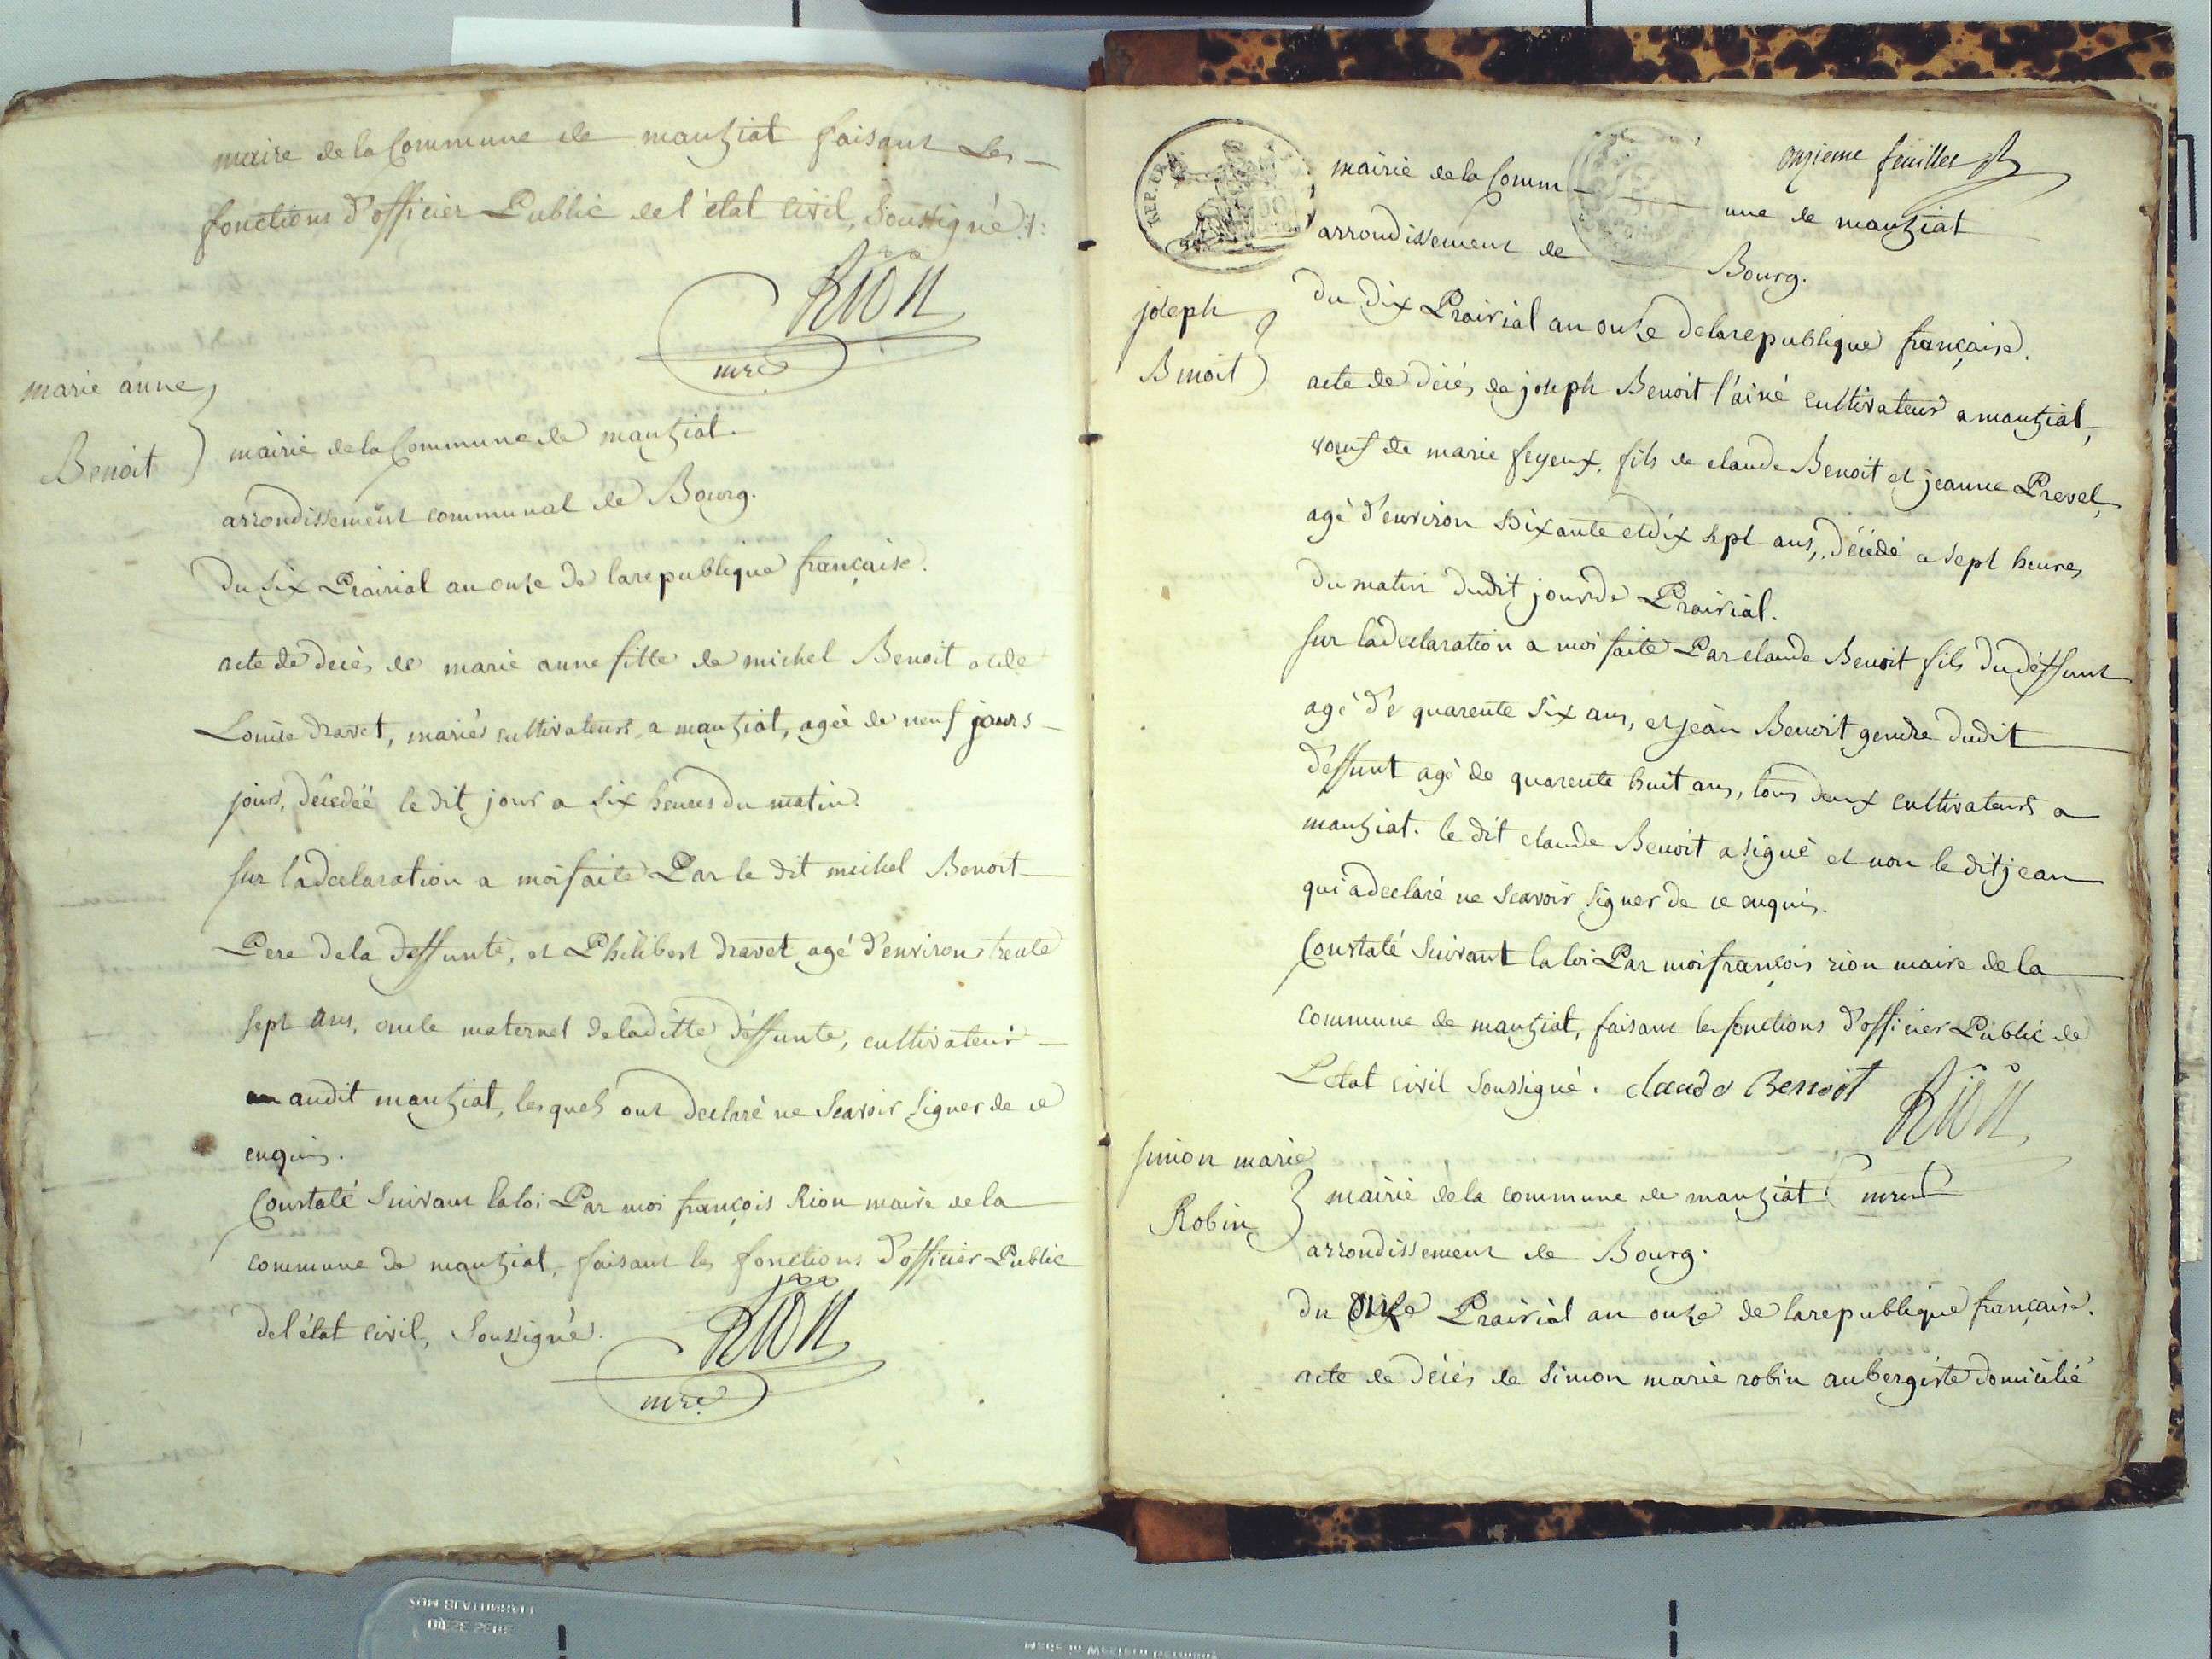 maire de la Commune de mantziat faisant Les
fonctions d'officier Public de l'état Civil, Soussigné.
Rion
mre
marie anne
Benoit
mairie de la Commune de mantziat.
arrondissement communal de Bourg.
Du Six Prairial an onze de la republique française.
acte de decès de marie anne fille de michel Benoit et de
Louise dravet, mariés cultivateurs a mantziat, agée de neuf jours
jours, décedée le dit jour a six heures du matin.
Sur la declaration a moi faite Par le dit michel Benoit
Pere de la deffunte, et Philibert dravet agé d'environ trente
sept ans, oncle maternel de laditte deffunte, cultivateur
audit mantziat, lesquels ont declaré ne Scavoir Signer de ce
enquis.
Constaté Suivant la loi Par moi françois Rion maire de la
commune de mantziat, faisant les fonctions d'officier Public
de l'état civil, Soussigné.
Rion
mre
REP. FRA
onzieme feuillet
mairie de la Commune de mantziat
arrondissement de Bourg.
joseph
Benoit
Du dix Prairial an onze de la republique française.
acte de décés de joseph Benoit l'ainé cultivateur a mantziat,
voeuf de marie feyeux, fils de claude Benoit et jeanne Prevel,
agé d'environ soixante et dix sept ans, décedé a sept heures
du matin dudit jour de Prairial.
Sur la declaration a moi faite Par claude Benoit fils du deffunt
agé de quarente Six ans, et jean Benoit gendre dudit
deffunt agé de quarente huit ans, tous deux cultivateurs a
mantziat. le dit claude Benoit a signé et non le dit jean
qui a declaré ne Scavoir Signer de ce enquis.
Constaté Suivant la loi Par moi françois rion maire de la
commune de mantziat, faisant les fonctions d'officier Public de
L'etat civil Soussigné. claude Benoit
Rion
mre
simon marie
Robin
mairie de la commune de mantziat
arrondissement de Bourg.
du onze Prairial an onze de la republique française.
acte de décés de simon marie robin aubergiste domicilié